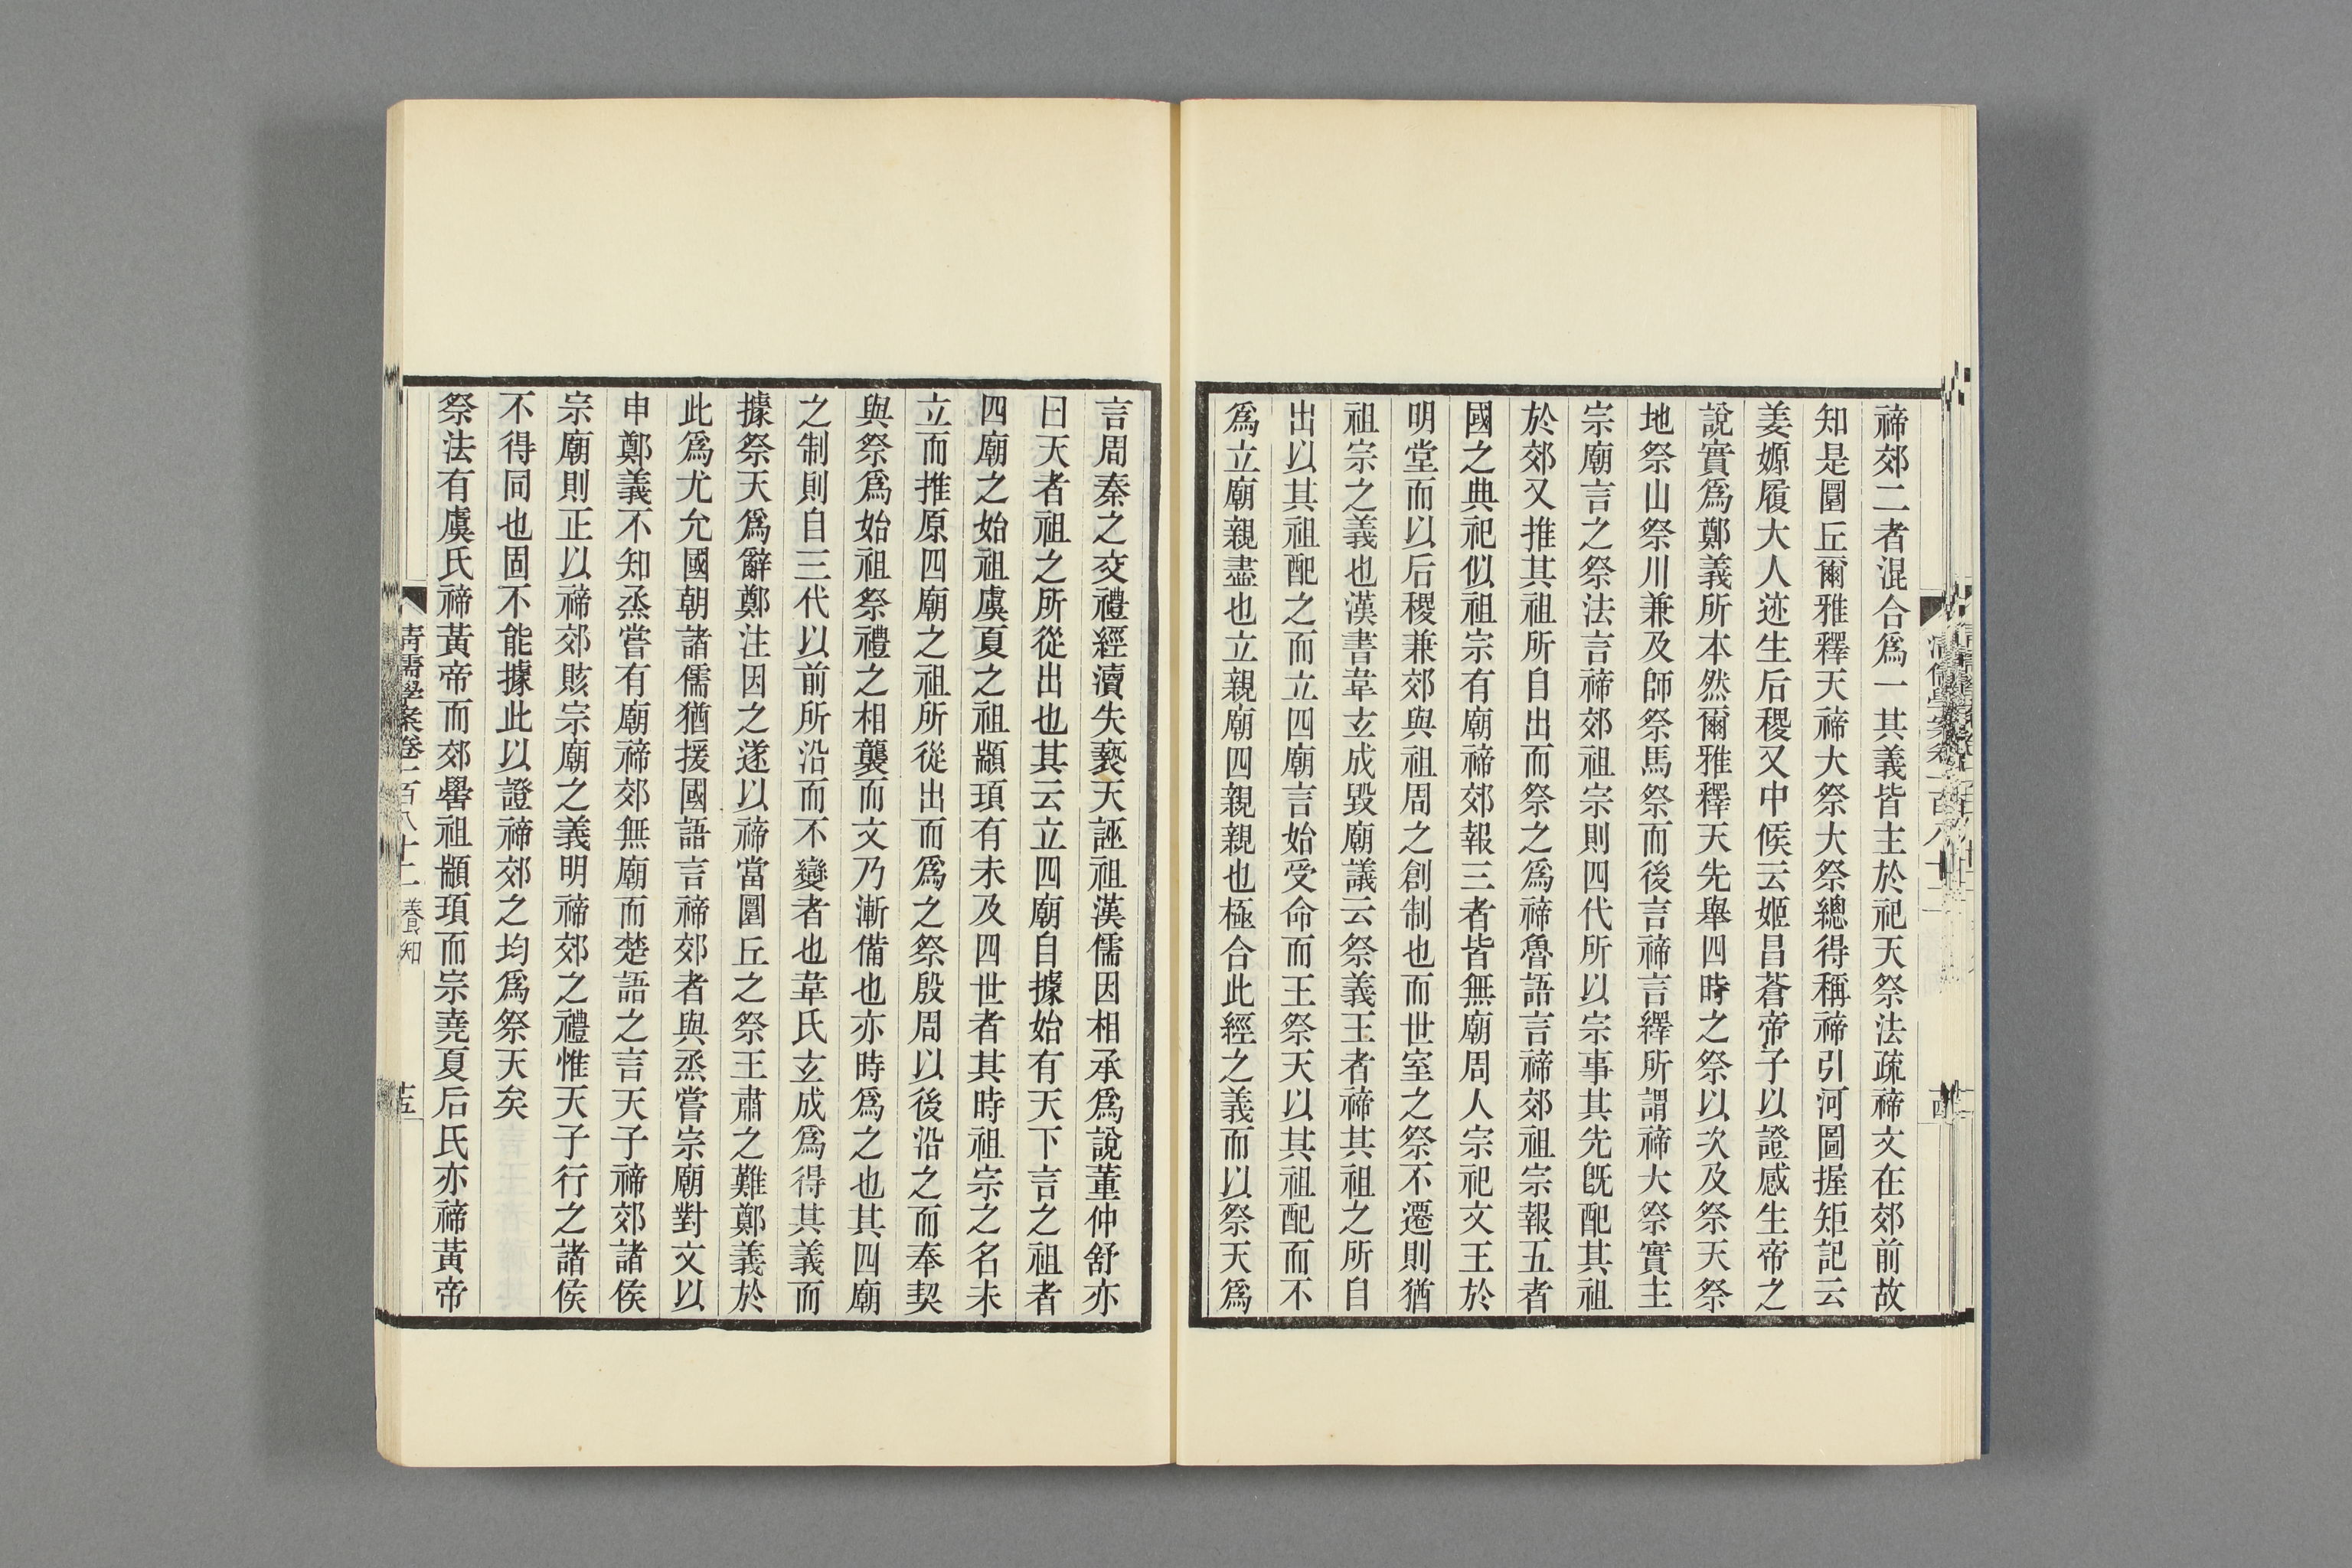 禘郊二者混合爲一其義皆主於祀天祭法疏禘文在郊前故
知是圜丘爾雅釋天禘大祭大祭總得稱禘引河圖握矩記云
姜嫄履大人迹生后稷又中候云姬昌蒼帝子以證感生帝之
說實爲鄭義所本然爾雅釋天先舉四時之祭以次及祭天祭
地祭山祭川兼及師祭馬祭而後言禘言繹所謂禘大祭實主
宗廟言之祭法言禘郊祖宗則四代所以宗事其先旣配其祖
於郊又推其祖所自出而祭之爲禘魯語言禘郊祖宗報五者
國之典祀似祖宗有廟禘郊報三者皆無廟周人宗祀文王於
明堂而以后稷兼郊與祖周之創制也而世室之祭不遷則猶
祖宗之義也漢書韋玄成毀廟議云祭義王者禘其祖之所自
出以其祖配之而立四廟言始受命而王祭天以其祖配而不
爲立廟親盡也立親廟四親親也極合此經之義而以祭天爲
言周秦之交禮經瀆失褻天誣祖漢儒因相承爲說董仲舒亦
曰天者祖之所從出也其云立四廟自據始有天下言之祖者
四廟之始祖虞夏之祖顓頊有未及四世者其時祖宗之名未
立而推原四廟之祖所從出而爲之祭殷周以後沿之而奉契
與祭爲始祖祭禮之相襲而文乃漸備也亦時爲之也其四廟
之制則自三代以前所沿而不變者也韋氏玄成爲得其義而
據祭天爲辭鄭注因之遂以禘當圜丘之祭王肅之難鄭義於
此爲尤允國朝諸儒猶援國語言禘郊者與烝嘗宗廟對文以
申鄭義不知烝嘗有廟禘郊無廟而楚語之言天子禘郊諸侯
宗廟則正以禘郊賅宗廟之義明禘郊之禮惟天子行之諸侯
不得同也固不能據此以證禘郊之均爲祭天矣
祭法有虞氏禘黃帝而郊嚳祖顓頊而宗堯夏后氏亦禘黃帝
清儒學案卷一百八十二 養知